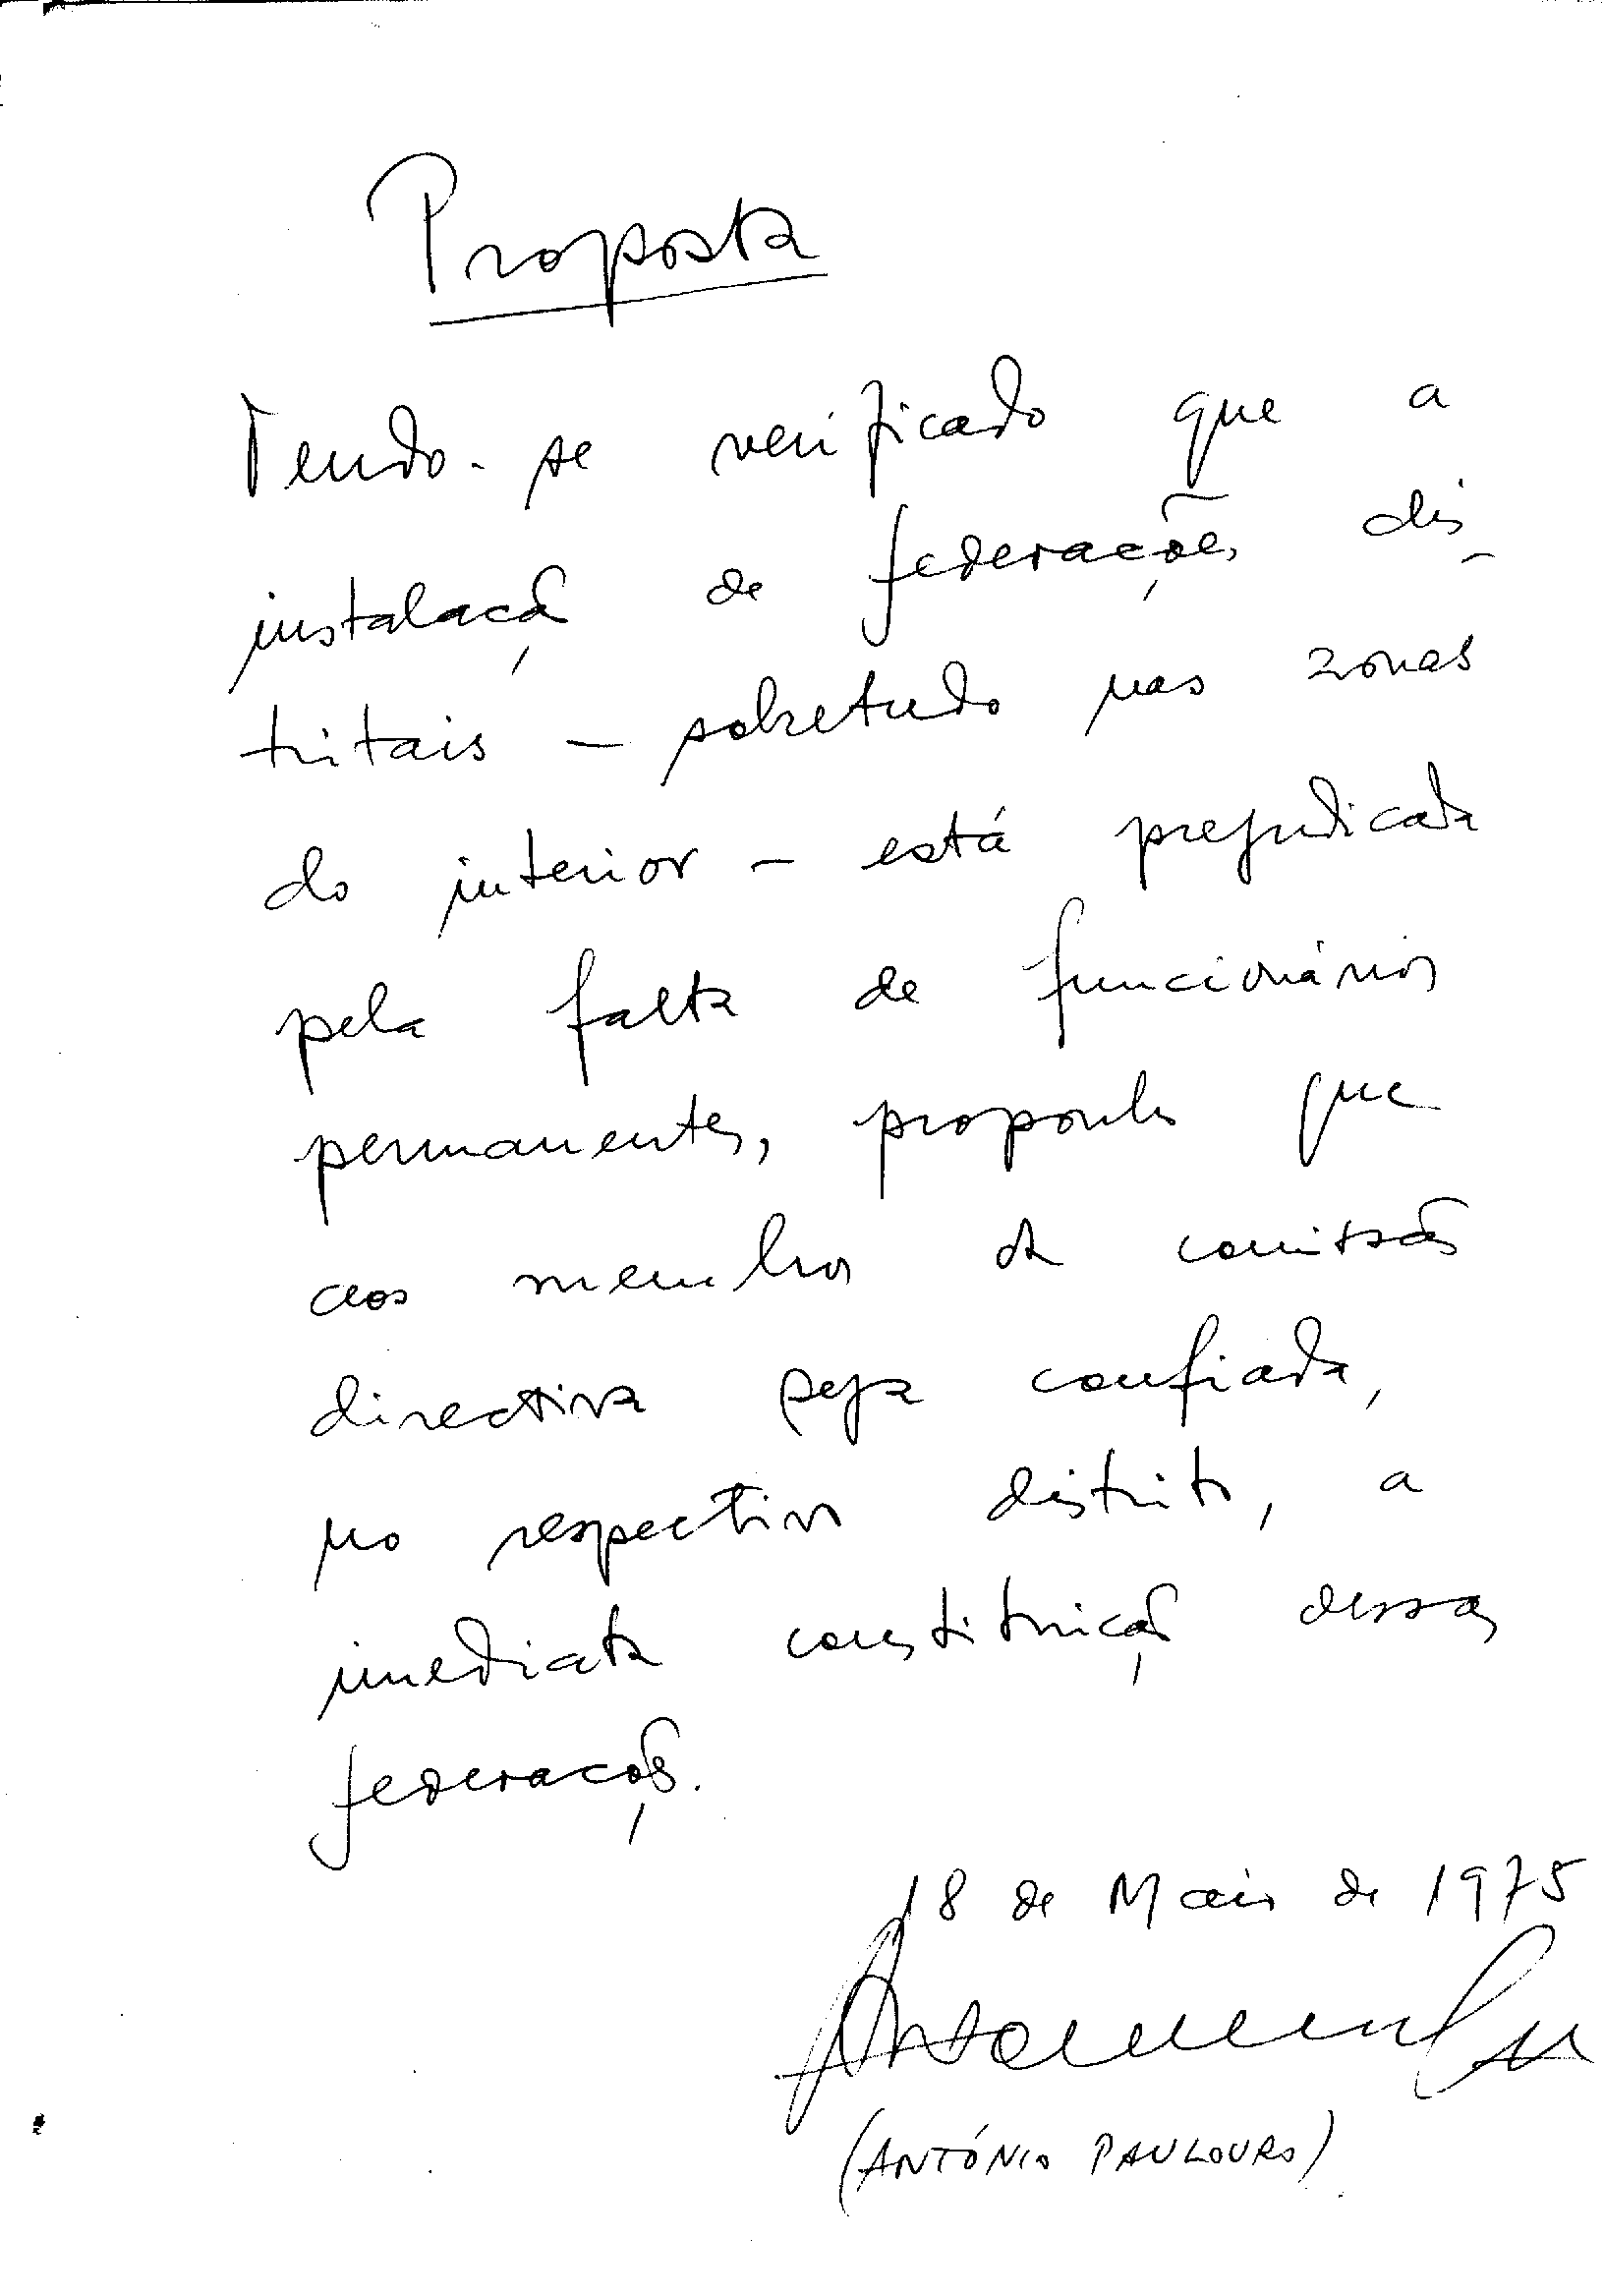 Proposta
Tendo-se verificado que a
instalação de federações dis-
tritais - sobretudo nas zonas
do interior - está prejudicada
pela falta de funcionários
permanentes, proponho que
aos membros da comissão
directiva seja confiada,
no respectivo distrito, a
imediata constituição dessas
federações.
18 de Maio de 1975
(ANTÓNIO PAULOURO)